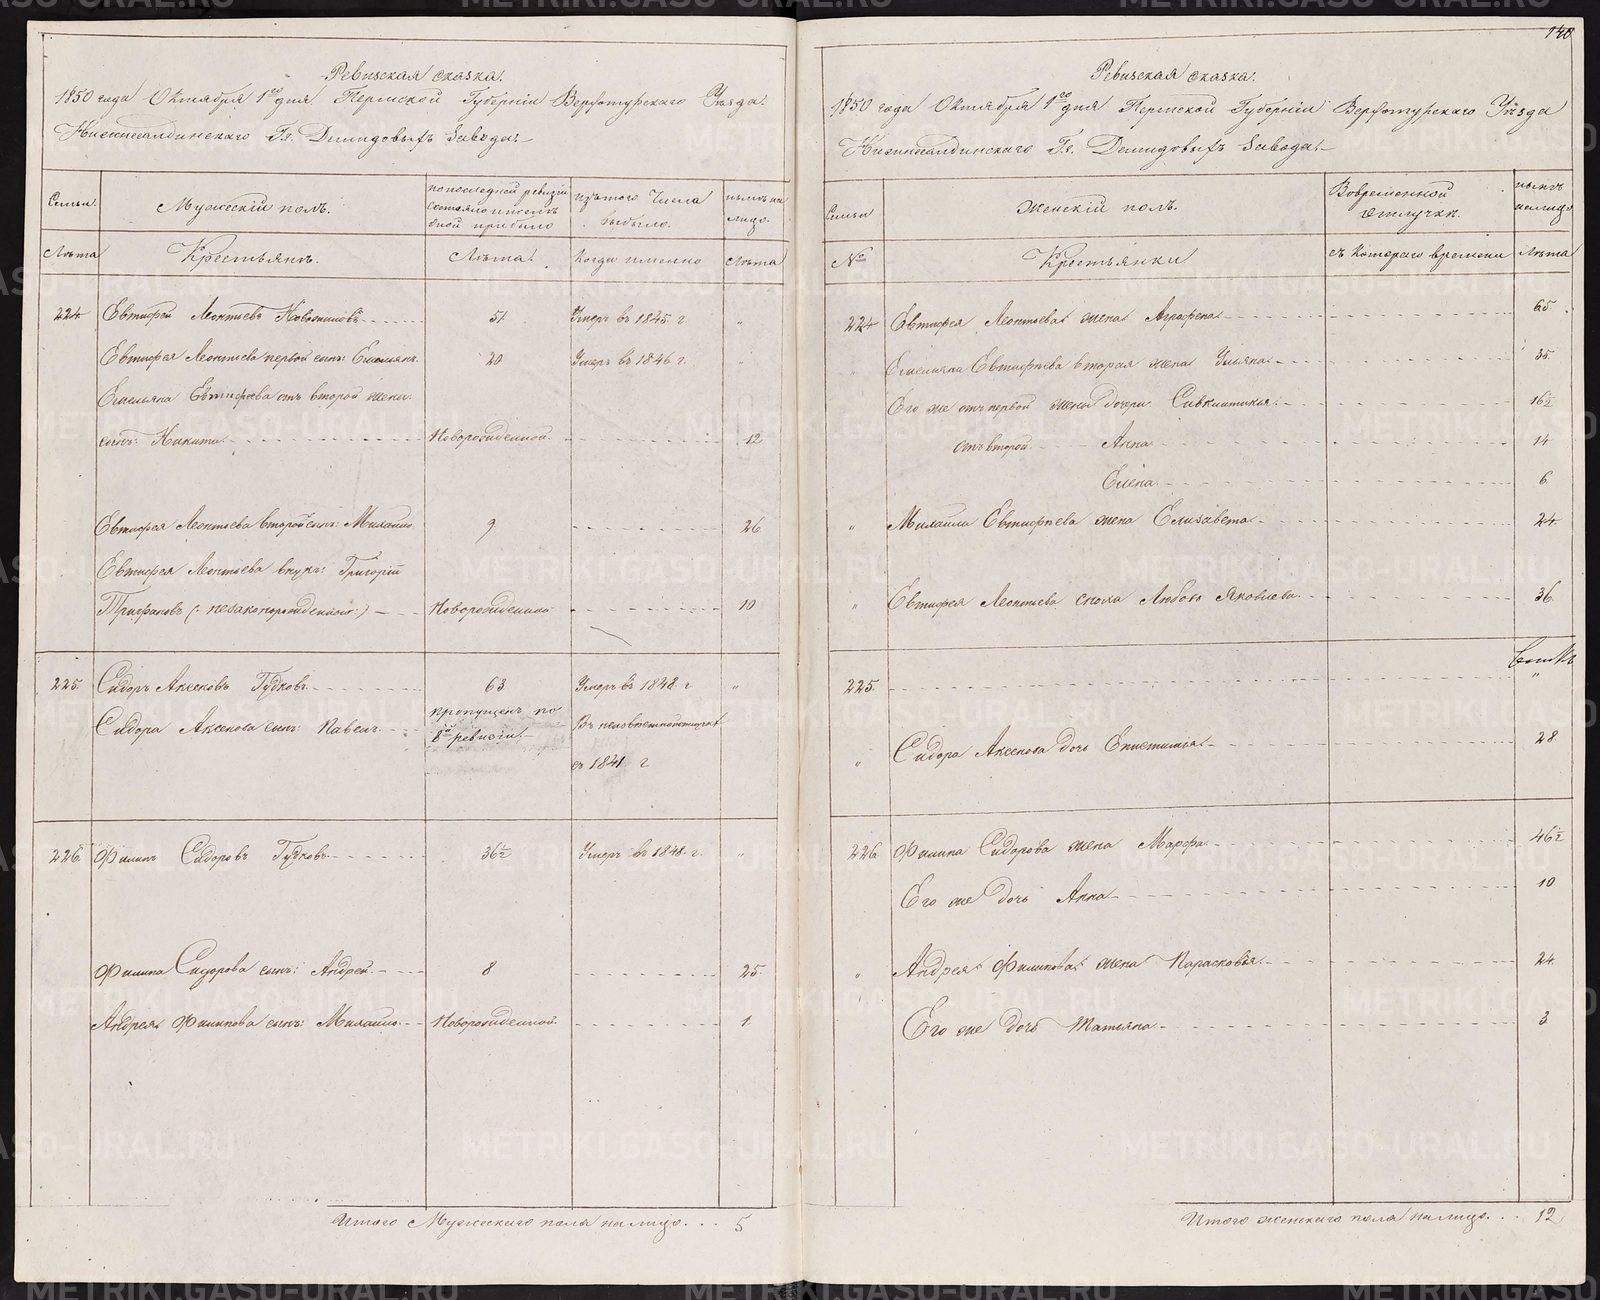 Ревизская сказка.
1850 года Октября 1го дня Пермской Губерніи Верхотурскаго Уѣзда
Нижнесалдинскаго Гг. Демидовыхъ Завода.
Семьи
Мужескій полъ.
по последней ревизіи состояло и после оной прибыло
изъ того Числа выбыло.
нынѣ на лицо.
Лѣта
Крестьянъ.
Лѣта
Когда именно
Лѣта
224 Евтифей Леонтьевъ Новожиловъ 51 Умеръ въ 1845 г. "
Евтифея Леонтьева первой сынъ: Емельянъ 20 Умеръ въ 1846 г. "
Емельяна Евтифѣева отъ второй жены
сынъ: Никита Новорожденной 12
Евтифея Леонтьева второй сынъ: Михайло 9 26
Евтифея Леонтьева внукъ: Григорій
Трифановъ (: незаконорожденной:) Новорожденной 10
225 Сидоръ Аксеновъ Гудковъ 63 Умеръ въ 1848 г. "
Сидора Аксенова сынъ: Павелъ пропущенъ по 8й ревизіи Въ неизвѣстной отлучкѣ
съ 1841 г
226 Филипъ Сидоровъ Гудковъ 36½ Умеръ въ 1848 г. "
Филипа Сидорова сынъ: Андрей 8 25
Андрея Филипова сынъ: Михайло Новорожденной 1
Итого Мужескаго пола на лицо 5
140
Ревизская сказка.
1850 года Октября 1го дня Пермской Губерніи Верхотурскаго Уѣзда
Нижнесалдинскаго Гг. Демидовыхъ Завода.
Семьи
Женскій полъ.
Во временной отлучкѣ.
нынѣ на лицо
№
Крестьянки
съ котораго времени
Лѣта
224 Евтифея Леонтьева жена Аграфена 65
" Емельяна Евтифѣева вторая жена Ульяна 35
Его же отъ первой жены дочери Сивклитикія 16½
отъ второй Анна 14
Елена 6
" Михаила Евтифѣева жена Елизавета 24
" Евтифея Леонтьева сноха Любовь Яковлева 36
225 "
" Сидора Аксенова дочь Епистимія 28
226 Филипа Сидорова жена Марфа 46½
Его же дочь Анна 10
" Андрея Филипова жена Парасковья 24
" Его же дочь Татьяна 3
Итого женскаго пола на лицо 12
METRIKI.GASO-URAL.RU